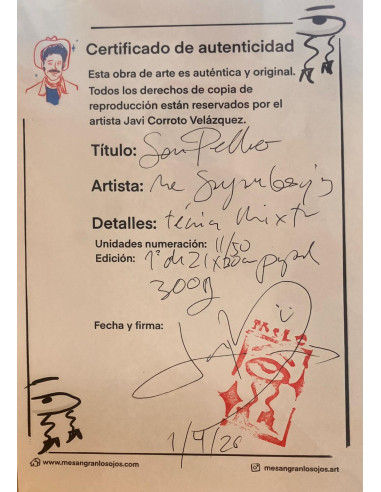 Certificado de autenticidad
Esta obra de arte es auténtica y original.
Todos los derechos de copia de
reproducción están reservados por el
artista Javi Corroto Velázquez.
Título: San Pedro
Artista: Me
Detalles: técnica Mixta
Unidades numeración: 11/50
Edición: 1ª de 21x papel
300g
Fecha y firma:
www.mesangranlosojos.com
mesangranlosojos.art